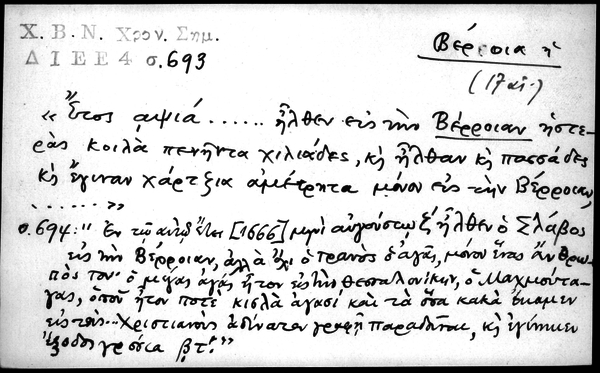 Χ. Β. Ν. Χρον. Σημ.
Δ Ι Ε Ε 4 σ. 693
Βέρροια ἡ
(17 αἰ.)
«Ἔτος αψιά ...... ἦλθεν εἰς τὴν Βέρροιαν ἡστε-
ρὰς κοιλὰ πενῆντα χιλιάδες, κὴ ἦλθαν κὴ πασσάδες
κὴ ἔγιναν χάρτξια ἀμέτρητα μόνον εἰς τὴν Βέρροιαν
......»
σ. 694: "Ἐν τῷ αὐτῷ ἔτει [1666] μηνὶ αὐγούστῳ ζ ἦλθεν ὁ Σλάβος
εἰς τὴν Βέρροιαν, ἀλλὰ ὄχι ὁ τρανὸς δ' ἀγᾶς, μόνον ἕνας ἄνθρω-
πός του· ὁ μέγας ἀγᾶς ἦτον εἰς τὴν Θεσσαλονίκην, ὁ Μαχμούτα-
γας, ὁποῦ ἦτον ποτὲ κισλὰ ἀγασὶ καὶ τὰ ὅσα κακὰ ἔκαμεν
εἰς τοὺς ... Χριστιανοὺς ἀδύνατον γραφῇ παραδῆναι, κὴ ἐγίνηκεν
ἔξοδος γρόσια βτ."